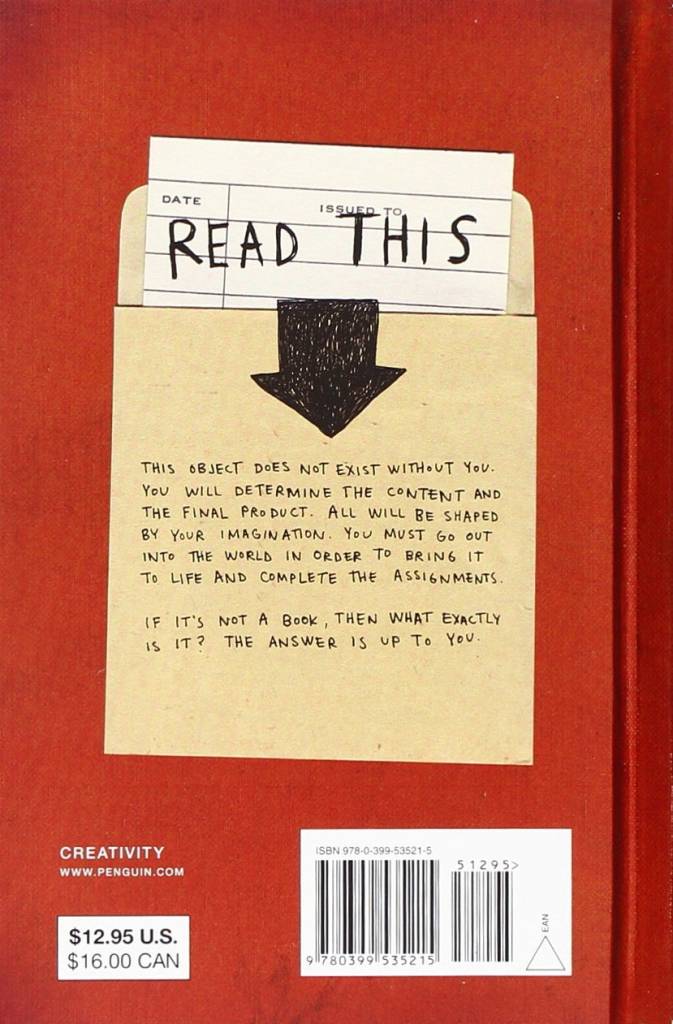 DATE
ISSUED TO
READ THIS
THIS OBJECT DOES NOT EXIST WITHOUT YOU.
YOU WILL DETERMINE THE CONTENT AND
THE FINAL PRODUCT. ALL WILL BE SHAPED
BY YOUR IMAGINATION. YOU MUST GO OUT
INTO THE WORLD IN ORDER TO BRING IT
TO LIFE AND COMPLETE THE ASSIGNMENTS.
IF IT'S NOT A BOOK, THEN WHAT EXACTLY
IS IT? THE ANSWER IS UP TO YOU.
CREATIVITY
WWW.PENGUIN.COM
$12.95 U.S.
$16.00 CAN
ISBN 978-0-399-53521-5
51295>
9 780399 535215
EAN